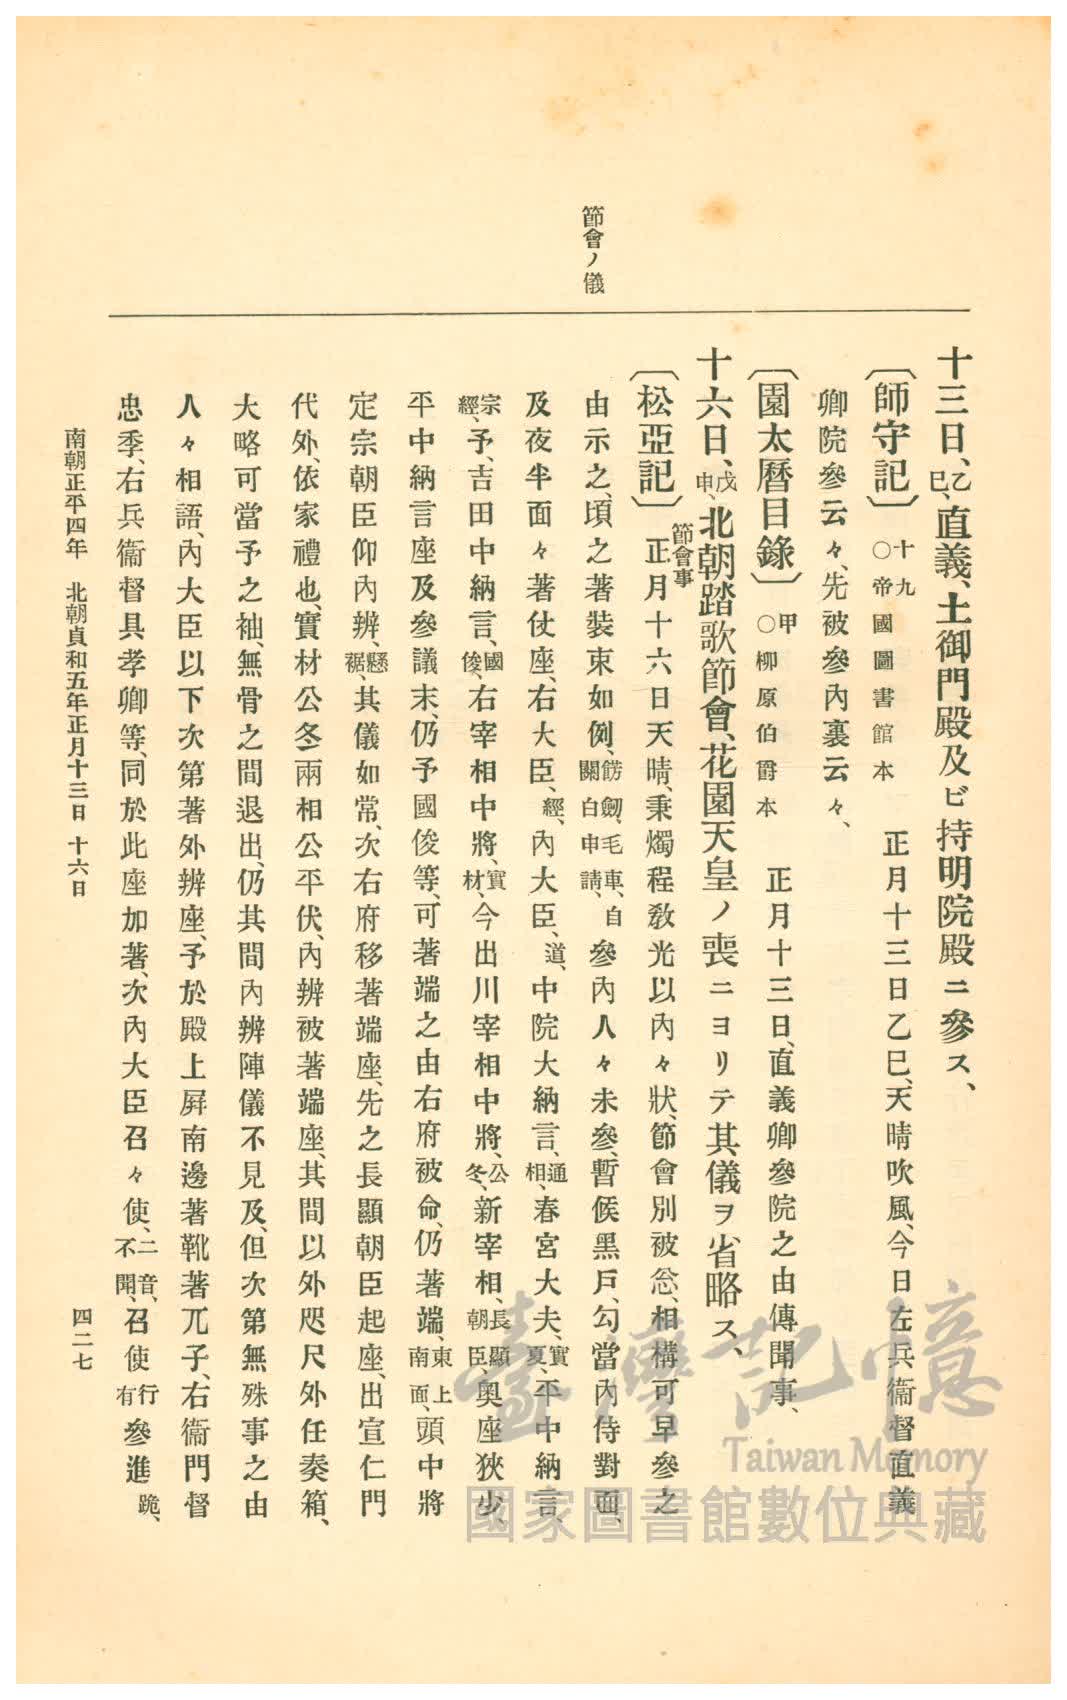 節會ノ儀
十三日、乙巳、直義、土御門殿及ビ持明院殿ニ參ス、
〔師守記〕十九○帝國圖書館本 正月十三日乙巳、天晴吹風、今日左兵衞督直義
卿院參云々、先被參內裏云々、
〔園太曆目錄〕甲○柳原伯爵本 正月十三日、直義卿參院之由傳聞事、
十六日、戊申、北朝踏歌節會、花園天皇ノ喪ニヨリテ其儀ヲ省略ス、
〔松亞記〕節會事正月十六日天晴、秉燭程敎光以內々狀、節會別被忩、相構可早參之
由示之、頃之著裝束如例、餝劔、毛車、自關白申請、參內人々未參、暫候黑戶、勾當內侍對面、
及夜半面々著仗座、右大臣、經、內大臣、道、中院大納言、通相、春宮大夫、實夏、平中納言、
宗經、予、吉田中納言、國俊、右宰相中將、實材、今出川宰相中將、公冬、新宰相、長顯朝臣、奧座狹少、
平中納言座及參議末、仍予國俊等、可著端之由右府被命、仍著端、東上南面、頭中將
定宗朝臣仰內辨、懸裾、其儀如常、次右府移著端座、先之長顯朝臣起座、出宣仁門
代外、依家禮也、實材公冬兩相公平伏、內辨被著端座、其間以外咫尺外任奏箱、
大略可當予之袖、無骨之間退出、仍其間內辨陣儀不見及、但次第無殊事之由
人々相語、內大臣以下次第著外辨座、予於殿上屛南邊著靴著兀子、右衞門督
忠季、右兵衞督具孝卿等、同於此座加著、次內大臣召々使、二音、不聞、召使行有參進跪、
南朝正平四年 北朝貞和五年正月十三日 十六日
四二七
臺灣記憶
Taiwan Memory
國家圖書館數位典藏